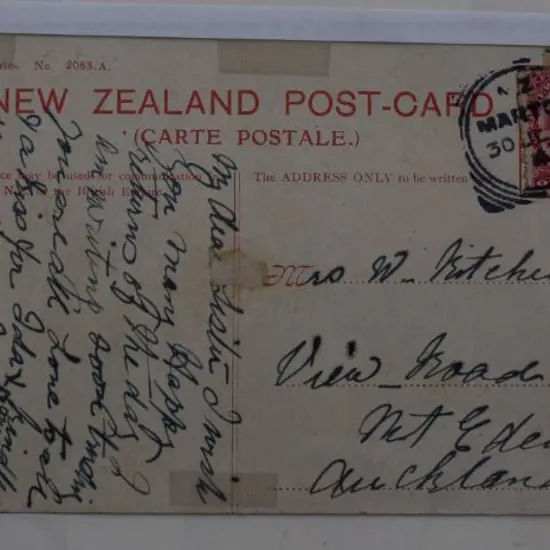 ries No. 2063.A.
NEW ZEALAND POST-CARD
(CARTE POSTALE.)
ce may be used for communication
N. the British Empire.
The ADDRESS ONLY to be written
N Z
MART
30
My dear Sister I wish
you many Happy
returns of the day
am writing soon
love to all
for Ida &
Mrs W. Kitche
View Road
Mt Eden
Auckland